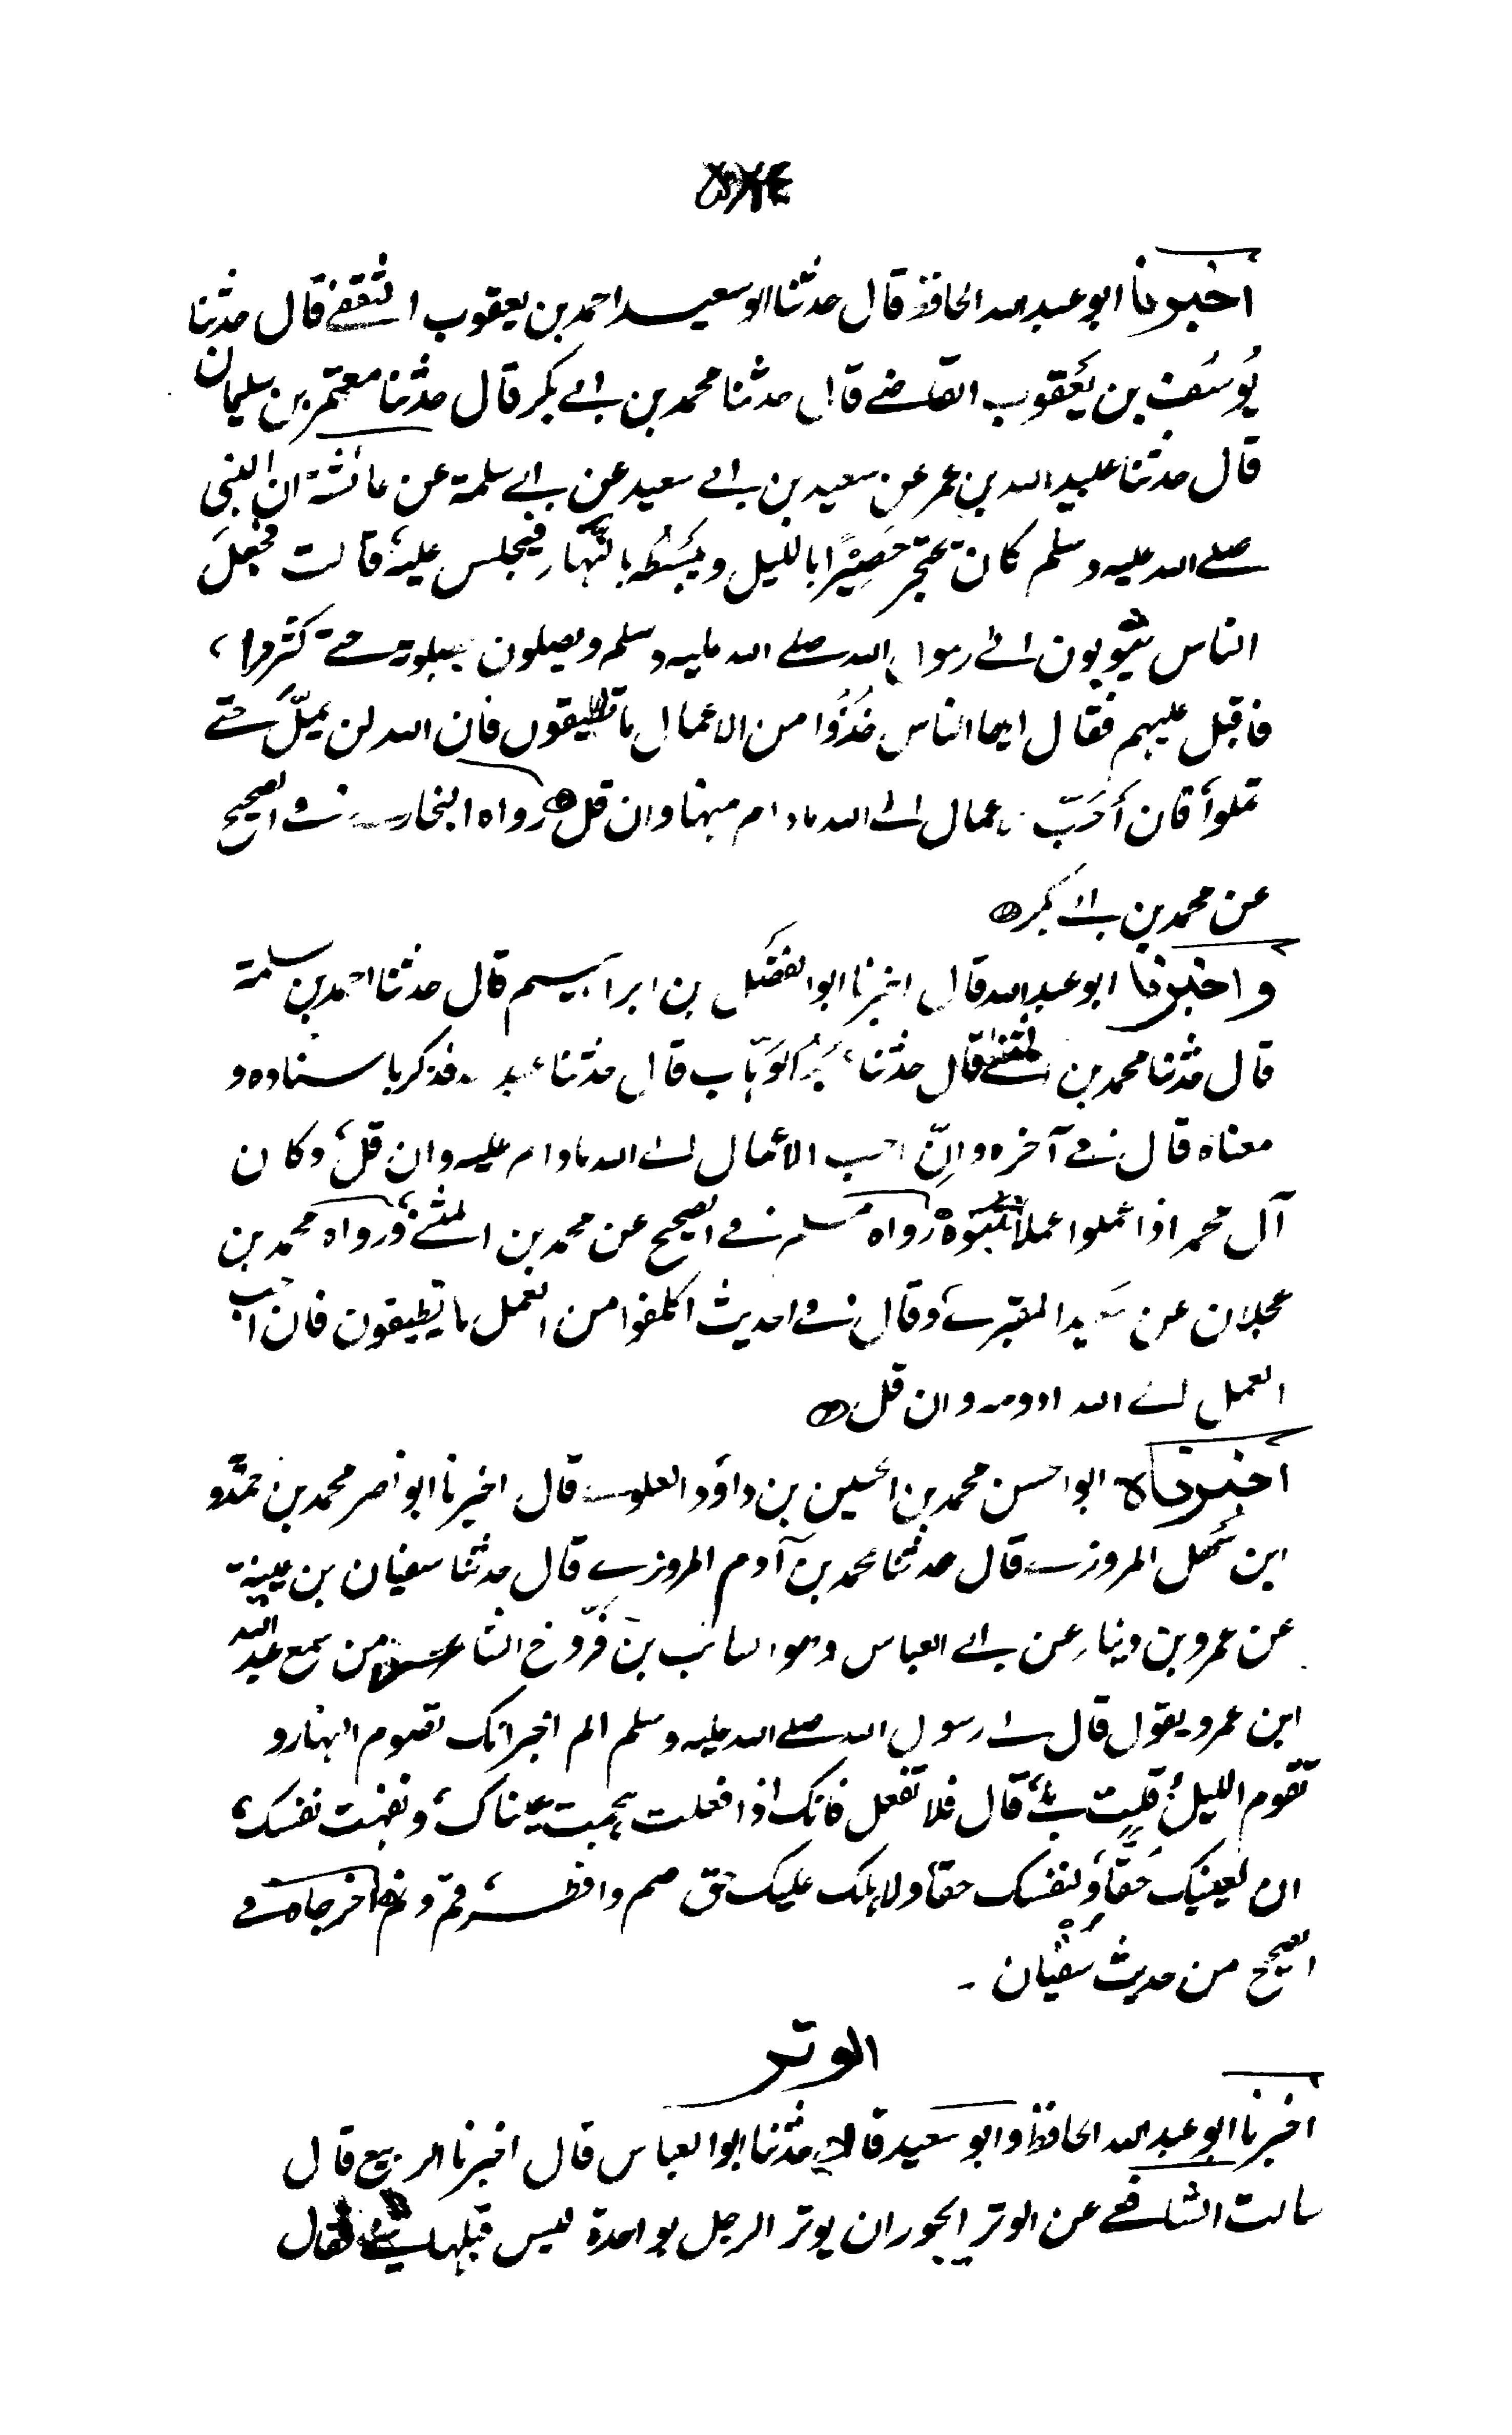 اخبرنا ابو عبد الله الحافظ قال حدثنا ابو سعيد احمد بن يعقوب الثقفي قال حدثنا
يُوسُف بن يَعقوب القاضي قال حدثنا محمد بن ابي بكر قال حدثنا معتمر بن سليمان
قال حدثنا عبيد الله بن عمر عن سعيد بن ابي سعيد عن ابي سلمة عن عائشة ان النبي
صلى الله عليه وسلم كان يحتجر حَصِيْرًا بالليل ويَبسُطُه بالنَّهارِ فيجلس عليه، قالت فجعلَ
الناس يثوبون الى رسول الله صلى الله عليه وسلم ويصلون بصلوته حتى كثروا،
فاقبل عليهم فقال ايها الناس خُذُوا من الاعمال ما تطيقون فان الله لن يملَّ حتى
تملوا فان أَحَبّ الاعمال الى الله ما دام منها وان قل رواه البخاري في الصحيح
عن محمد بن ابي بكر
واخبرنا ابو عبد الله قال اخبرنا ابو الفضل بن ابراهيم قال حدثنا احمد بن سلمة
قال حدثنا محمد بن المثنى قال حدثنا عبد الوَهّاب قال حدثنا عبيد الله فذكر باسناده و
معناه قال في آخره وانّ احب الاعمال الى الله ما دام عليه وان قل، وكان
آل محمد اذا عملوا عملا اثبتوه رواه مسلم في الصحيح عن محمد بن المثنى، ورواه محمد بن
عجلان عن سعيد المقبري وقال في الحديث اكلفوا من العمل ما تطيقون فان احب
العمل الى الله ادومه وان قل
اخبرناه ابو الحسن محمد بن الحسين بن داؤد العلوي قال اخبرنا ابو نصر محمد بن حمدو
ابن سهل المروزي قال حدثنا محمد بن آدم المروزي قال حدثنا سفيان بن عيينة
عن عمرو بن دينار عن ابي العباس وهو السائب بن فرّوخ الشاعر من سمع عبد الله
ابن عمرو يقول قال لي رسول الله صلى الله عليه وسلم الم اخبر انك تصوم النهار و
تقوم الليل، قلت بلى، قال فلا تفعل فانك اذا فعلت هجمت عيناك، ونفهت نفسك،
ان لعينيك حَقًّا ولنفسك حقا ولاهلك عليك حق صم وافطر، قم ونم اخرجاه في
الصحيح من حديث سُفيان -
الوتر
اخبرنا ابو عبد الله الحافظ وابو سعيد قالا حدثنا ابو العباس قال اخبرنا الربيع قال
سالت الشافعي عن الوتر ايجوز ان يوتر الرجل بواحدة ليس قبلها شيء فقال